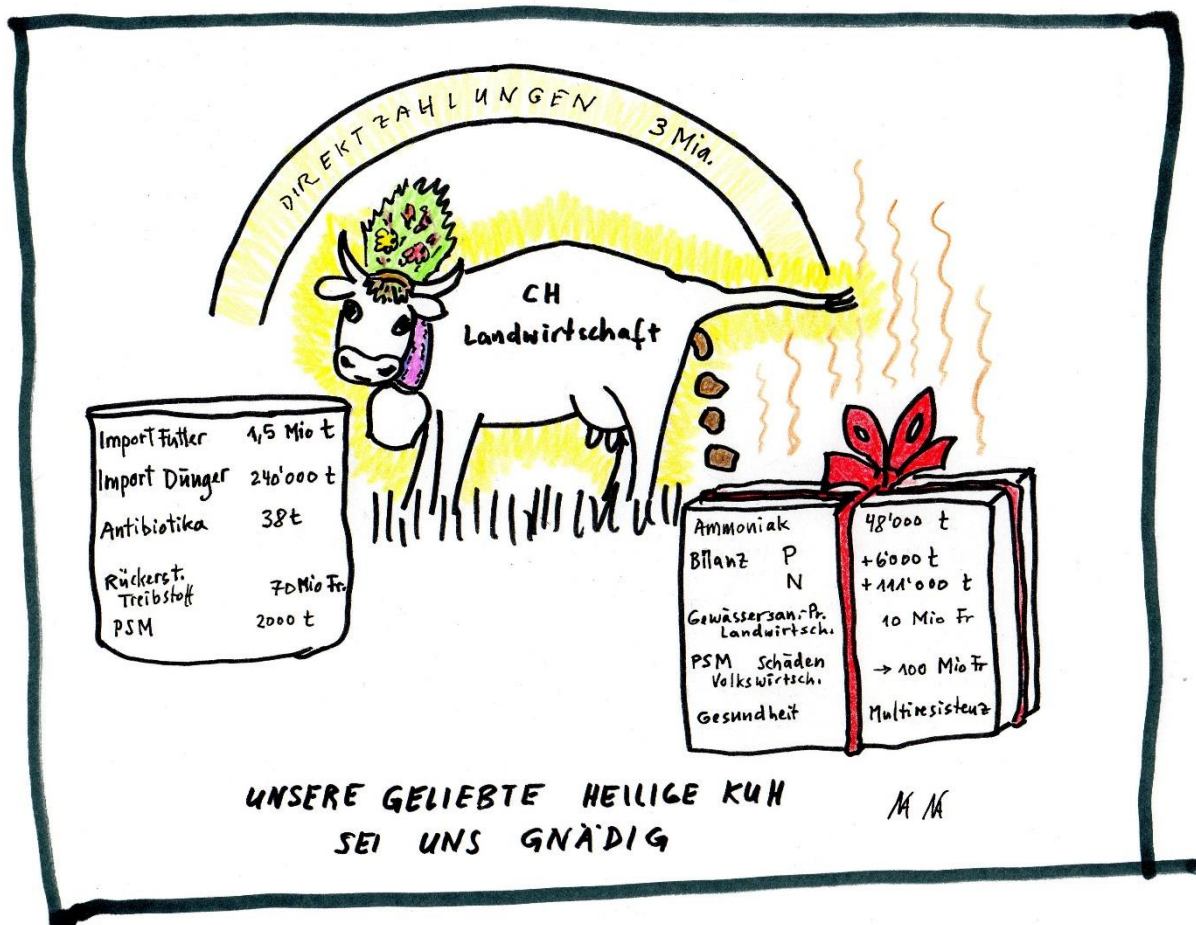 DIREKTZAHLUNGEN 3 Mia.
CH
Landwirtschaft
Import Futter 1,5 Mio t
Import Dünger 240'000 t
Antibiotika 38t
Rückerst.
Treibstoff 70 Mio Fr.
PSM 2000 t
Ammoniak 48'000 t
Bilanz P +6'000 t
N +111'000 t
Gewässersan.-Pr.
Landwirtsch. 10 Mio Fr
PSM Schäden
Volkswirtsch. → 100 Mio Fr
Gesundheit Multiresistenz
UNSERE GELIEBTE HEILIGE KUH
SEI UNS GNÄDIG